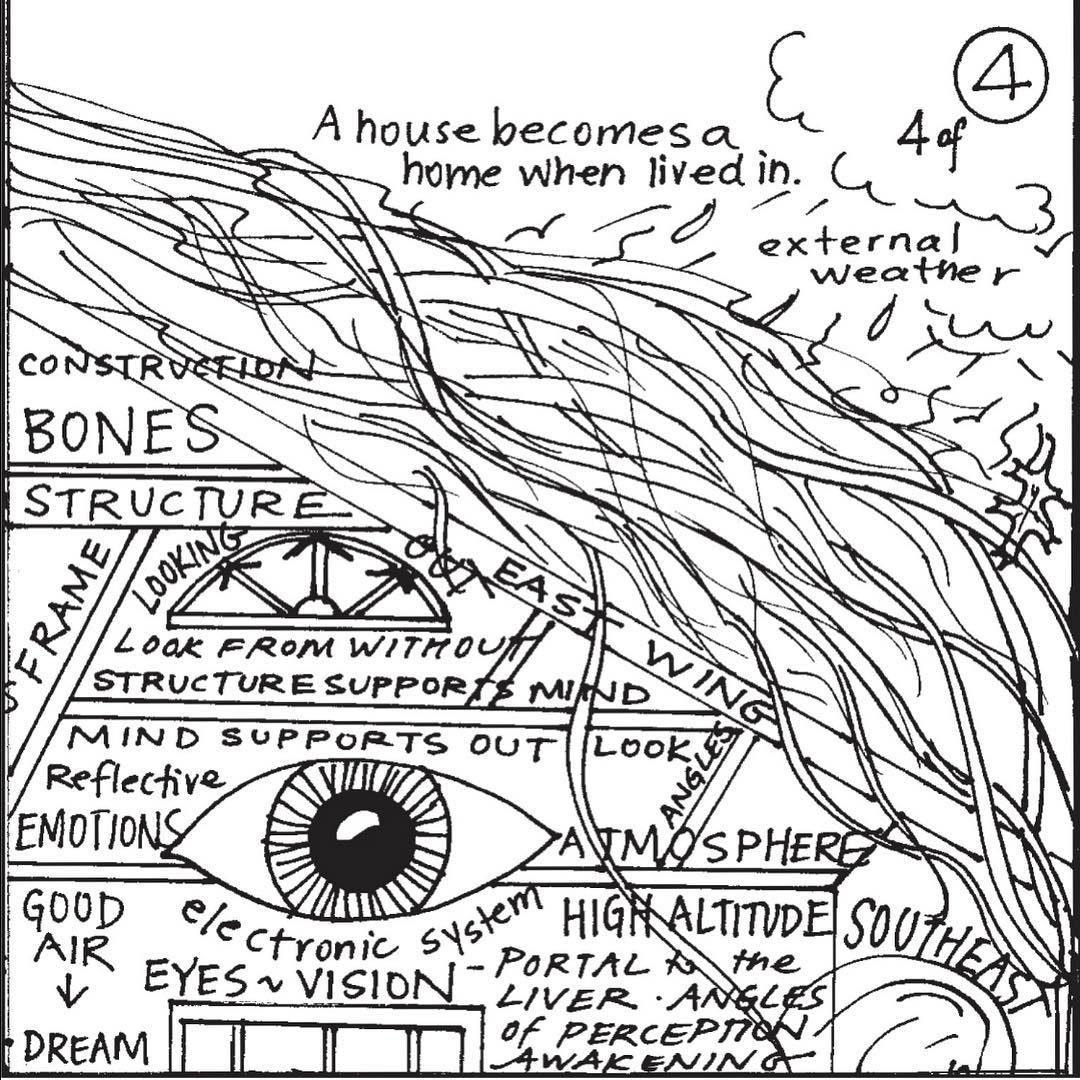 4
4 of
A house becomes a
home when lived in.
external
weather
CONSTRUCTION
BONES
STRUCTURE
FRAME
LOOKING
OUT
EAST WING
LOOK FROM WITHOUT
STRUCTURE SUPPORTS MIND
MIND SUPPORTS OUT LOOK
ANGLES
Reflective
EMOTIONS
ATMOSPHERE
GOOD
AIR
↓
DREAM
electronic system
EYES ~ VISION -
HIGH ALTITUDE
PORTAL to the
LIVER · ANGLES
of PERCEPTION
AWAKENING
SOUTHEAST